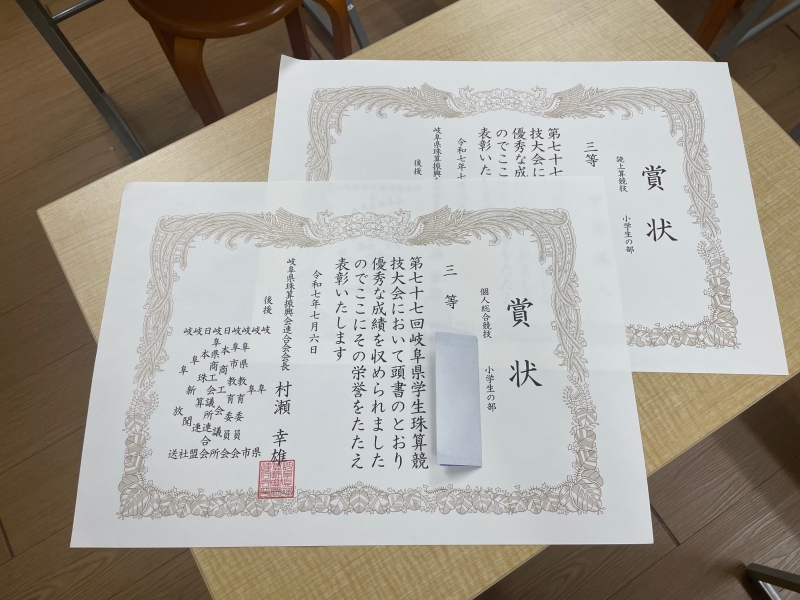 賞状
読上算競技 小学生の部
三等
第七十七
技大会に
優秀な成
のでここ
表彰いた
令和七年七
岐阜県珠算振興会
後援
賞状
個人総合競技 小学生の部
三等
第七十七回岐阜県学生珠算競
技大会において頭書のとおり
優秀な成績を収められました
のでここにその栄誉をたたえ
表彰いたします
令和七年七月六日
岐阜県珠算振興会連合会会長 村瀬 幸雄
後援
岐阜県
岐阜市
岐阜県教育委員会
岐阜市教育委員会
日本商工会議所
岐阜県商工会議所連合会
日本珠算連盟
岐阜新聞社
岐阜放送